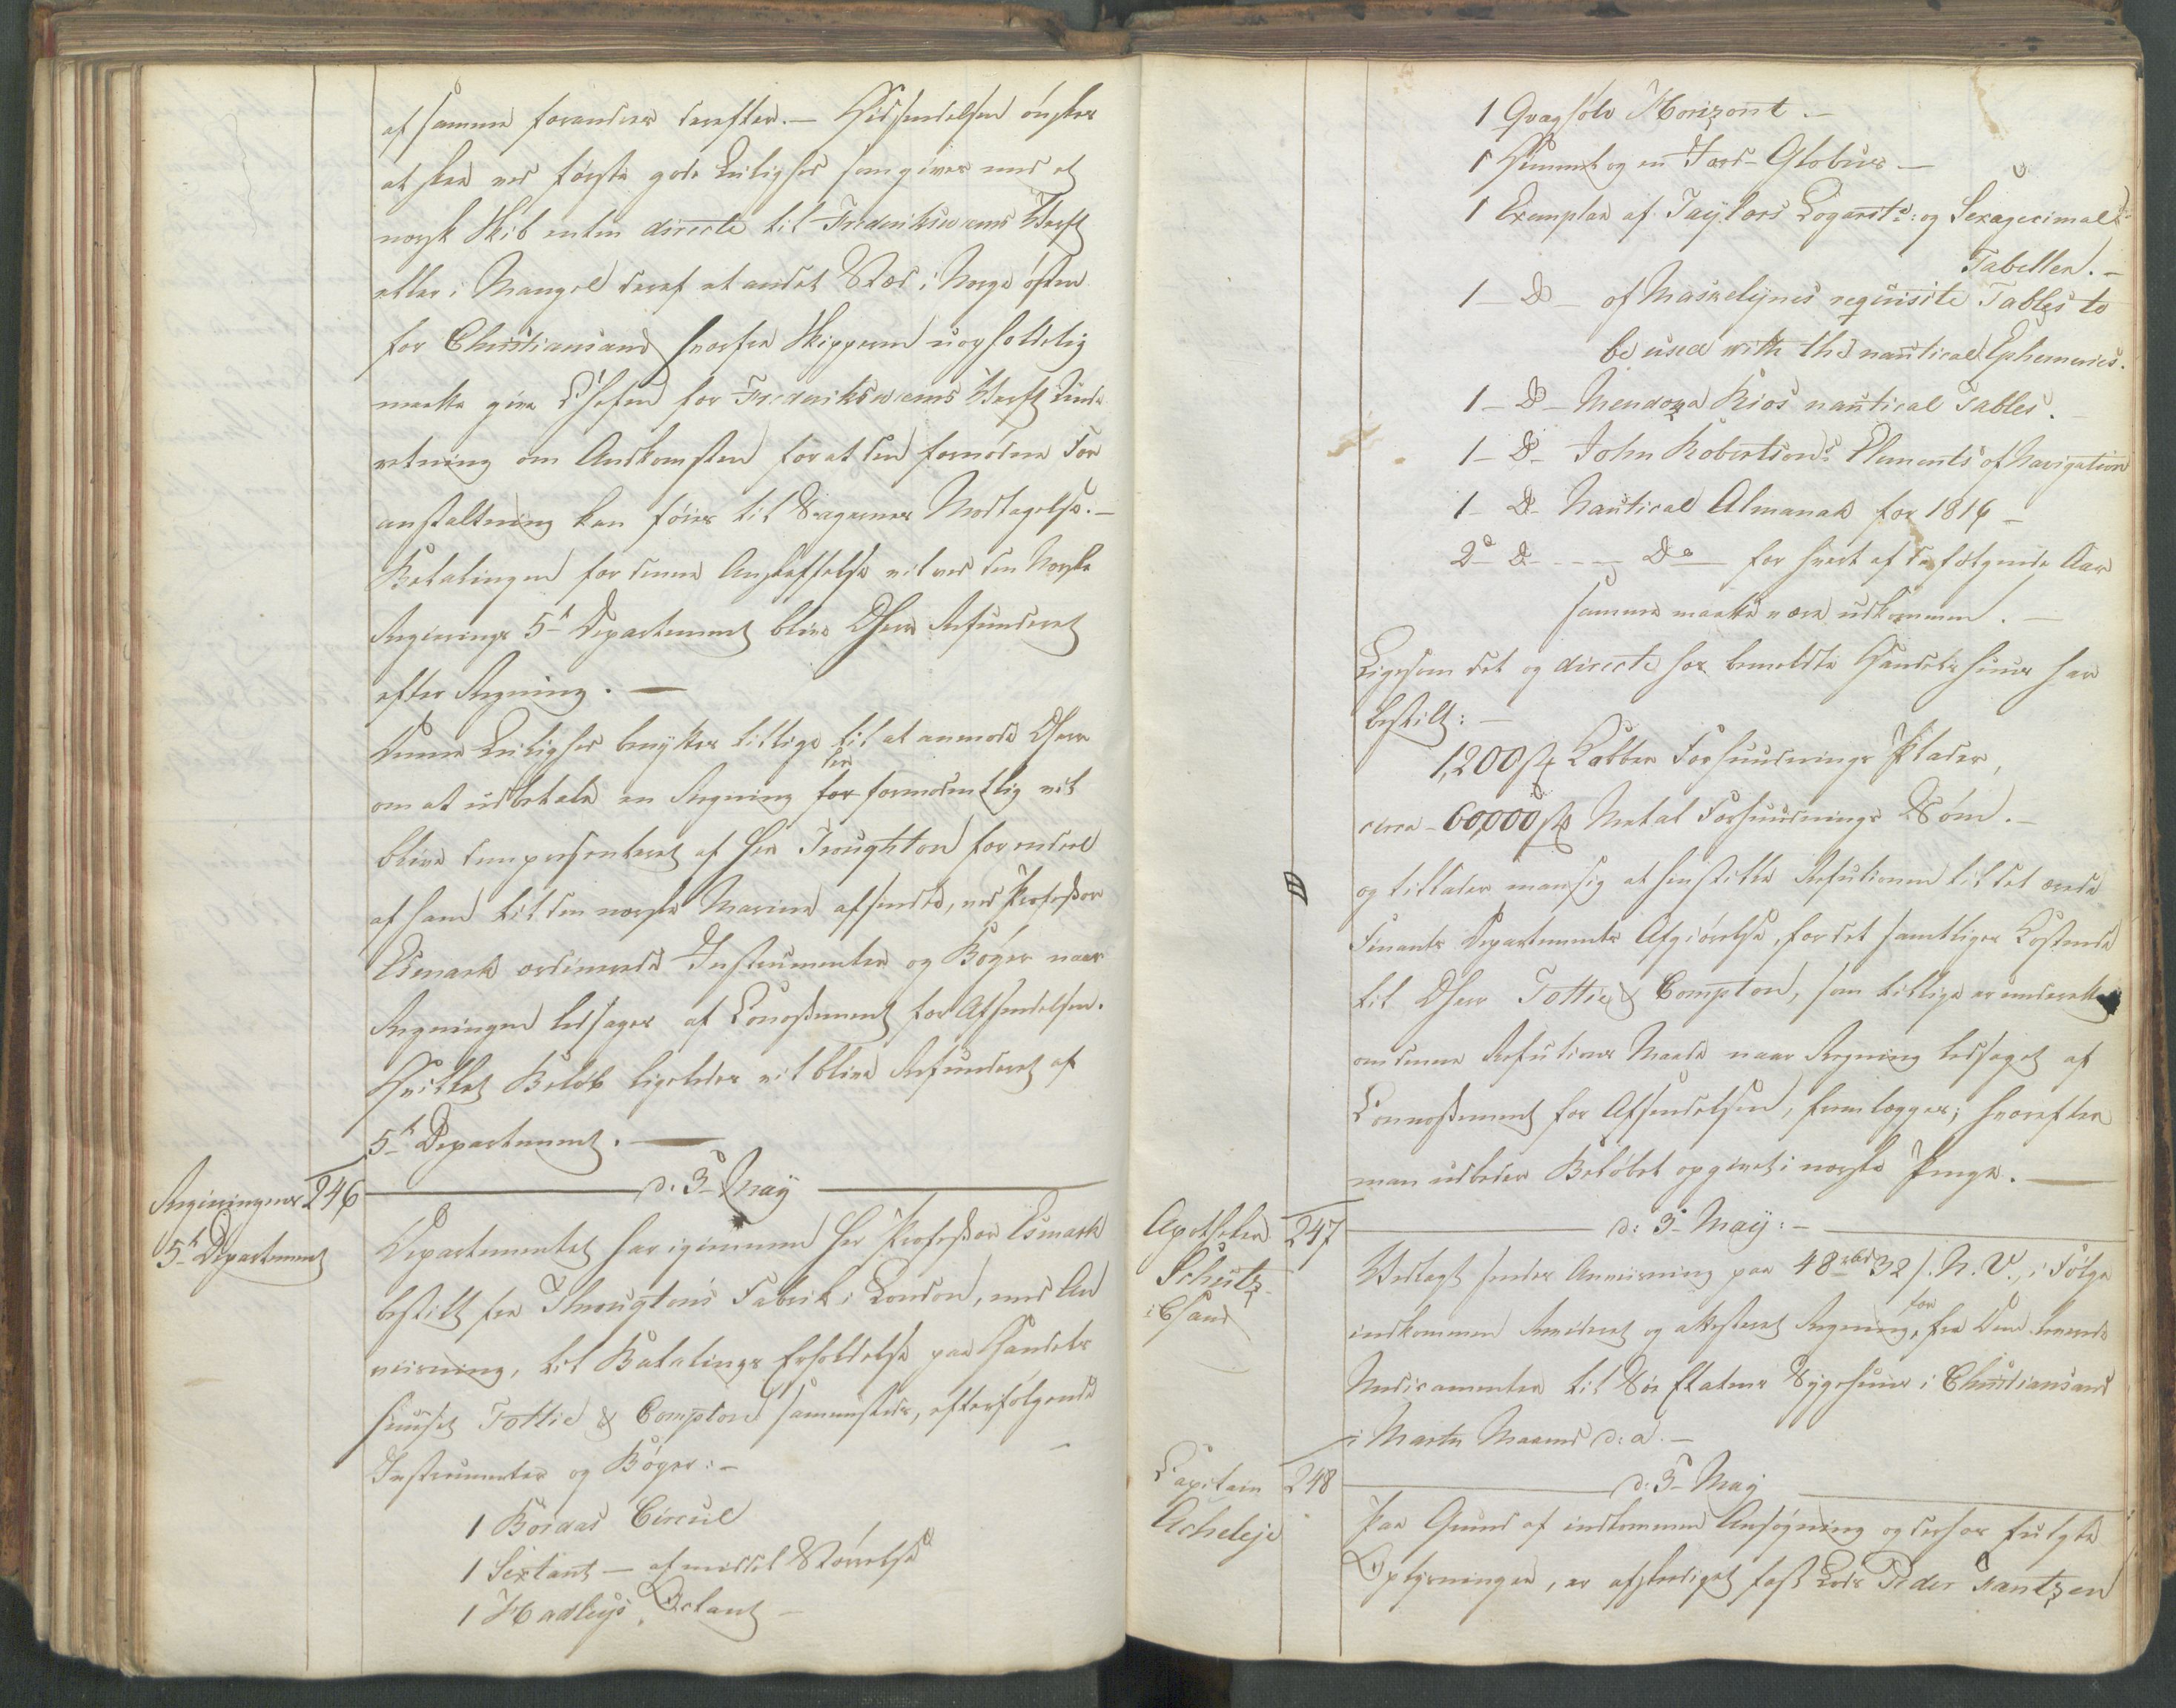 at samme forandres derefter. — Hidsendelsen ønskes
at skee ved første gode Leilighed som gives med et
norsk Skib enten directe til Frederiksværns Værft
eller i Mangel deraf et andet Stæd i Norge østen
for Christiansand hvorfra Skipperen uopholdelig
maatte give Chefen for Frederiksværns Værft Unde
retning om Ankomsten for at den fornødne For
anstaltning kan føies til Sagernes Modtagelse. —
Betalingen for denne Anskaffelse vil ved den Norske
Regierings 5te Departement blive DHerr Refunderet
efter Regning. —
Denne Leilighed benyttes tillige til at anmode DHerr
der
om at udbetale en Regning for formodentlig vil
blive dem præsenteret af Her Troughton for endeel
af ham til den norske Marine afsendte, ved Professor
Esmark ordinerede Instrumenter og Bøger naar
Regningen ledsages af Conossement for Afsendelsen.
Hvilket Beløb ligeledes vil blive Refunderet af
5te Departement. —
Regieringens 246 d. 3 May
5te Departement
Departementet har igiennem Her Professor Esmark
bestilt fra Througtons Fabrik i London, med An
viisning, til Betalings Erholdelse paa Handels
huuset Tottie & Compton sammesteds, efterfølgende
Instrumenter og Bøger: —
1 Bordas Circul
1 Sextant — af middel Størrelse
1 Hadleys Octant —
1 Qvægsølv Horizont. —
1 Himmel og en Jord-Globus —
1 Exemplar af Taylors Logarit: og Sexagecimal
Tabeller. —
1 — D — of Maskelynes requisite Tables to
be used with the nautical Ephemeries.
1 — D — Mendoza Rios nautical Tables.
1 — D — John Robertsons Elements of Navigation
1 — D — Nautical Almanak for 1816 —
2 — D — — Do — for hvert af de følgende Aar
samme maatte være udkommen. —
Ligesom det og directe hos bemeldte Handelshuus har
bestilt: —
1,200 st Kobber Forhuudnings Plader,
circa — 60,000 st Metal Forhuudnings Søm. —
og tillader man sig at henstille Refusionen til det ærede
Finants Departements Afgiørelse, for det samtliges Kostende
til DHerr Tottie & Compton, som tillige er underrettet
om denne Refusions Maade naar Regning ledsaget af
Connossement for Afsendelsen, fremlægges; hvorefter
man udbeder Beløbet opgivet i norske Penge. —
Apotheker 247 d: 3 May: —
Schütz
i CSand
Vedlagt sendes Anviisning paa 48 rbd 32 s. N. V., i Følge
for
indkommen Revideret og attesteret Regning, fra Dem leverede
Medicamenter til Søe Etatens Sygehuus i Christiansand
i Marts Maaned d: a. —
Capitain 248 d: 3 May
Acheleje
Paa Grund af indkommen Ansøgning og derhos fulgte
Oplysninger, er afskediget fast Lods Peder Frantzen